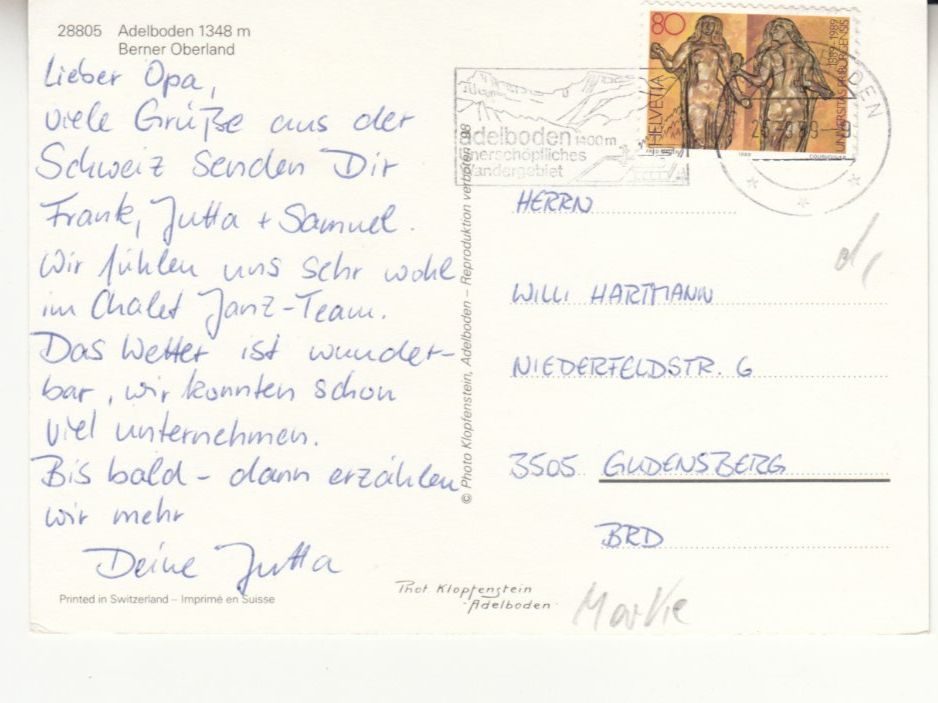 28805 Adelboden 1348 m
Berner Oberland
Lieber Opa,
viele Grüße aus der
Schweiz senden Dir
Frank, Jutta + Samuel.
Wir fühlen uns sehr wohl
im Chalet Janz-Team.
Das Wetter ist wunder-
bar, wir konnten schon
viel unternehmen.
Bis bald - dann erzählen
wir mehr
Deine Jutta
Printed in Switzerland – Imprimé en Suisse
© Photo Klopfenstein, Adelboden – Reproduktion verboten
Phot Klopfenstein
Adelboden
adelboden 1400m
unerschöpfliches
Wandergebiet
80
HELVETIA
1889-1989
UNIVERSITAS FRIBURGENSIS
HERRN
WILLI HARTMANN
NIEDERFELDSTR. 6
3505 GUDENSBERG
BRD
Marke